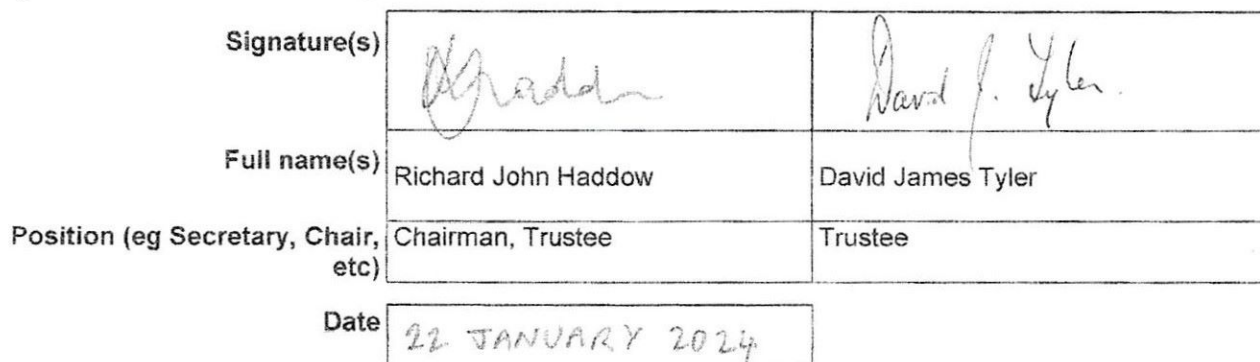 Signature(s)
David J. Tyler.
Full name(s) Richard John Haddow David James Tyler
Position (eg Secretary, Chair, etc) Chairman, Trustee Trustee
Date 22 JANUARY 2024